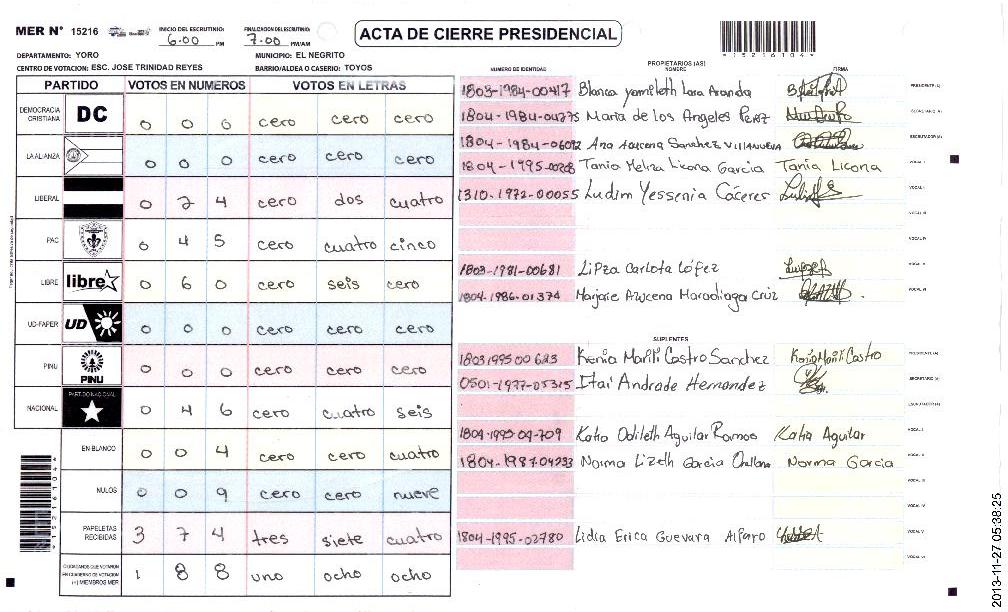 MER Nº 15216 INICIO DEL ESCRUTINIO: 6:00 PM FINALIZACION DEL ESCRUTINIO: 7:00 PM/AM
ACTA DE CIERRE PRESIDENCIAL
*15216104*
DEPARTAMENTO: YORO MUNICIPIO: EL NEGRITO
CENTRO DE VOTACION: ESC. JOSE TRINIDAD REYES BARRIO/ALDEA O CASERIO: TOYOS
PARTIDO VOTOS EN NUMEROS VOTOS EN LETRAS
DEMOCRACIA CRISTIANA DC 0 0 0 cero cero cero
LA ALIANZA 0 0 0 cero cero cero
LIBERAL 0 2 4 cero dos cuatro
PAC 0 4 5 cero cuatro cinco
LIBRE libre 0 6 0 cero seis cero
UD-FAPER UD 0 0 0 cero cero cero
PINU PINU 0 0 0 cero cero cero
NACIONAL PARTIDO NACIONAL 0 4 6 cero cuatro seis
EN BLANCO 0 0 4 cero cero cuatro
NULOS 0 0 9 cero cero nueve
PAPELETAS RECIBIDAS 3 7 4 tres siete cuatro
CIUDADANOS QUE VOTARON EN CUADERNO DE VOTACION (+) MIEMBROS MER 1 8 8 uno ocho ocho
PROPIETARIOS (AS)
NUMERO DE IDENTIDAD NOMBRE FIRMA
1803-1984-00417 Blanca yamileth Lara Aranda PRESIDENTE (A)
1804-1984-04275 Maria de los Angeles Perez SECRETARIO (A)
1804-1984-06092 Ana Azucena Sanchez VILLANUEVA ESCRUTADOR (A)
1804-1995-00208 Tania Meliza Licona Garcia Tania Licona VOCAL I
1310-1972-00055 Ludim Yessenia Cáceres VOCAL II
VOCAL III
VOCAL IV
1803-1981-00681 Lipza Carlota López VOCAL V
1804-1986-01374 Marjorie Azucena Maradiaga Cruz VOCAL VI
SUPLENTES
1803199500623 Kenia Mariti Castro Sanchez Kenia Mariti Castro PRESIDENTE (A)
0501-1977-05315 Itai Andrade Hernandez SECRETARIO (A)
ESCRUTADOR (A)
1804-1995-04-709 Katia Odileth Aguilar Ramos Katia Aguilar VOCAL I
1804-1987-04233 Norma Lizeth Garcia Orellana Norma Garcia VOCAL II
VOCAL III
VOCAL IV
1804-1995-02780 Lidia Erica Guevara Alfaro VOCAL V
VOCAL VI
2013-11-27 05:38:25